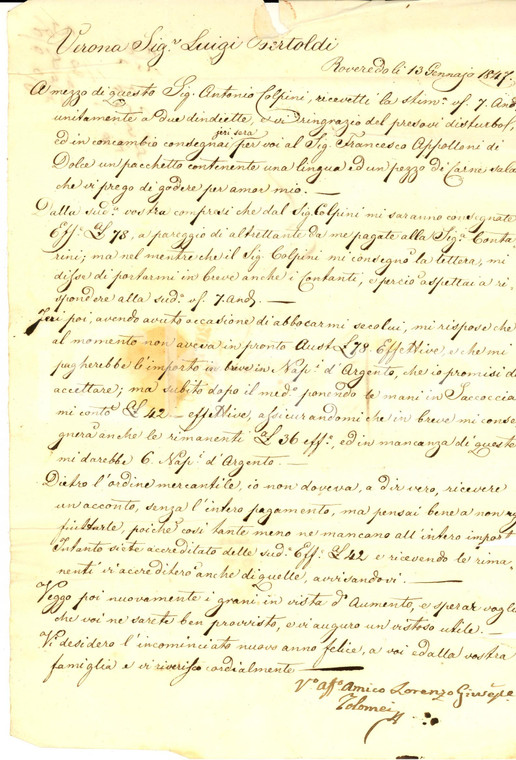 Verona Sig.r Luigi Bertoldi
Roveredo li 13 Gennajo 1847.
A mezzo di questo Sig. Antonio Colpini, ricevetti la stim.a vs. 7. And.
unitamente a due dindiette, e vi ringrazio del presovi disturbo,
jeri sera
ed in concambio consegnai per voi al Sig. Francesco Appolloni di
Dolce un pacchetto contenente una lingua ed un pezzo di Carne sala
che vi prego di godere per amor mio. —
Dalla sud.a vostra compresi che dal Sig. Colpini mi saranno consegnate
Eff.e £ 78, a pareggio di altrettante da me pagate alla Sig.a Conta
rini; ma nel mentre che il Sig. Colpini mi consegnò la lettera, mi
disse di portarmi in breve anche i Contanti, e perciò aspettai a ri=
spondere alla sud.a vs. 7. And. —
Jeri poi, avendo avuto occasione di abboccarmi secolui, mi rispose che
al momento non aveva in pronto Aust. £ 78 Effettive, e che mi
pagherebbe l'importo in breve in Nap.i d'Argento, che io promisi d'
accettare; ma subito dopo il med.o ponendo le mani in Saccoccia
mi contò £ 42 — effettive, assicurandomi che in breve mi conse
gnerà anche le rimanenti £ 36 eff.e, ed in mancanza di queste
mi darebbe 6. Nap.i d'Argento. —
Dietro l'ordine mercantile, io non doveva, a dir vero, ricevere
un acconto, senza l'intero pagamento, ma pensai bene a non
fiutarle, poichè così tante meno ne mancano all'intero import
Intanto siete accreditato delle sud.e Eff.e £ 42 e ricevendo le rima=
nenti vi accrediterò anche di quelle, avvisandovi. —
Veggo poi nuovamente i grani in vista d'Aumento, e sperar voglio
che voi ne sarete ben provvisto, e vi auguro un vistoso utile. —
Vi desidero l'incominciato nuovo anno felice, a voi ed alla vostra
famiglia e vi riverisco cordialmente —
V.o aff.o Amico Lorenzo Giuseppe
Tolomei